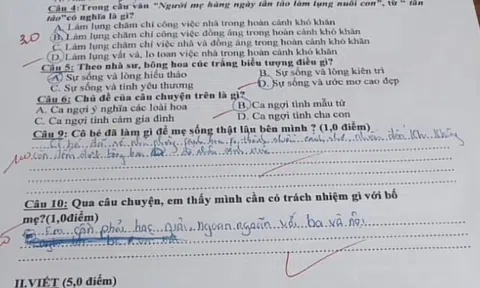 Câu 4:Trong câu văn "Người mẹ hàng ngày tần tảo làm lụng nuôi con", từ " tần
tảo"có nghĩa là gì?
A. Làm lụng chăm chỉ công việc nhà trong hoàn cảnh khó khăn
B. Làm lụng chăm chỉ công việc đồng áng trong hoàn cảnh khó khăn
3,0
C. Làm lụng chăm chỉ việc nhà và đồng áng trong hoàn cảnh khó khăn
D. Làm lụng vất vả, lo toan việc nhà trong hoàn cảnh khó khăn
Câu 5: Theo nhà sư, bông hoa cúc trắng biểu tượng điều gì?
A. Sự sống và lòng hiếu thảo B. Sự sống và lòng kiên trì
C. Sự sống và tình yêu thương D. Sự sống và ước mơ cao đẹp
Câu 6: Chủ đề của câu chuyện trên là gì?
A. Ca ngợi ý nghĩa các loài hoa B. Ca ngợi tình mẫu tử
C. Ca ngợi tình cảm gia đình D. Ca ngợi tình cha con
Câu 9: Cô bé đã làm gì để mẹ sống thật lâu bên mình ? (1,0 điểm)
Cô bé đã xé nhỏ
Câu 10: Qua câu chuyện, em thấy mình cần có trách nhiệm gì với bố
mẹ?(1,0điểm)
Em cần phải học giỏi, ngoan ngoãn với ba và
II.VIẾT (5,0 điểm)